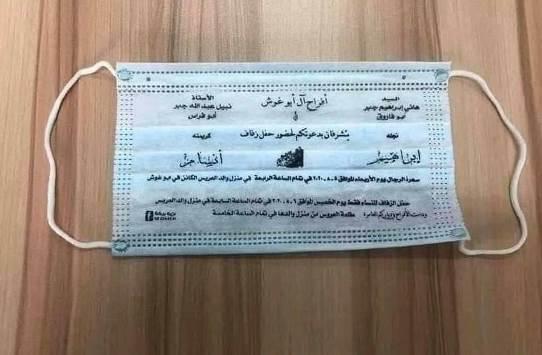 أفراح آل أبو غوش
السيد
هاني إبراهيم جبر
ابو فاروق
الأستاذ
نبيل عبد الله جبر
أبو فراس
يشرفان بدعوتكم لحضور حفل زفاف
نجله
كريمته
إبراهيم
سهرة الرجال يوم الأربعاء الموافق ٢٠٢٠.٨.٥ في تمام الساعة الرابعة في منزل والد العريس الكائن في ابو غوش
حفل الزفاف للنساء فقط يوم الخميس الموافق ٢٠٢٠.٨.٦ في تمام الساعة السابعة في منزل والد العريس
طلعة العروس من منزل والدها في تمام الساعة الخامسة
ودامت الأفراح في دياركم العامرة